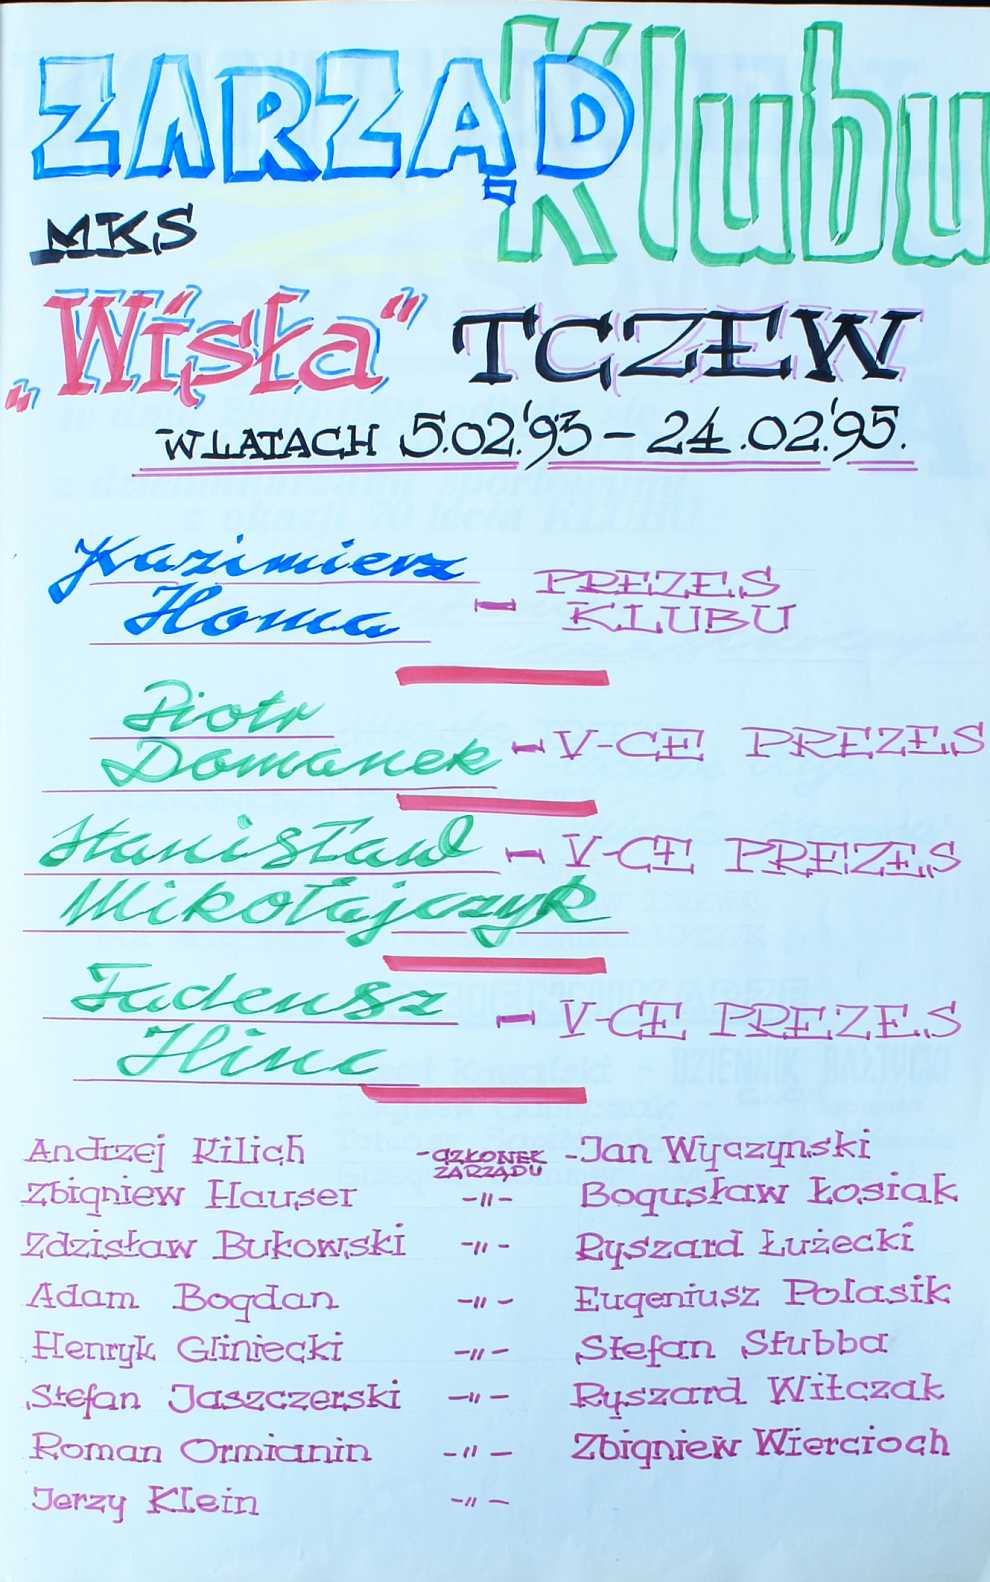 ZARZĄD Klubu
MKS
„Wisła” TCZEW
W LATACH 5.02.'93 – 24.02.'95.
Kazimierz
Homa – PREZES
KLUBU
Piotr
Domanek – V-CE PREZES
Stanisław – V-CE PREZES
Mikołajczyk
Tadeusz
Hinc – V-CE PREZES
Andrzej Kilich - CZŁONEK ZARZĄDU - Jan Wyczynski
Zbigniew Hauser -〃- Bogusław Łosiak
Zdzisław Bukowski -〃- Ryszard Łużecki
Adam Bogdan -〃- Eugeniusz Polasik
Henryk Gliniecki -〃- Stefan Stubba
Stefan Jaszczerski -〃- Ryszard Witczak
Roman Ormianin -〃- Zbigniew Wiercioch
Jerzy Klein -〃-